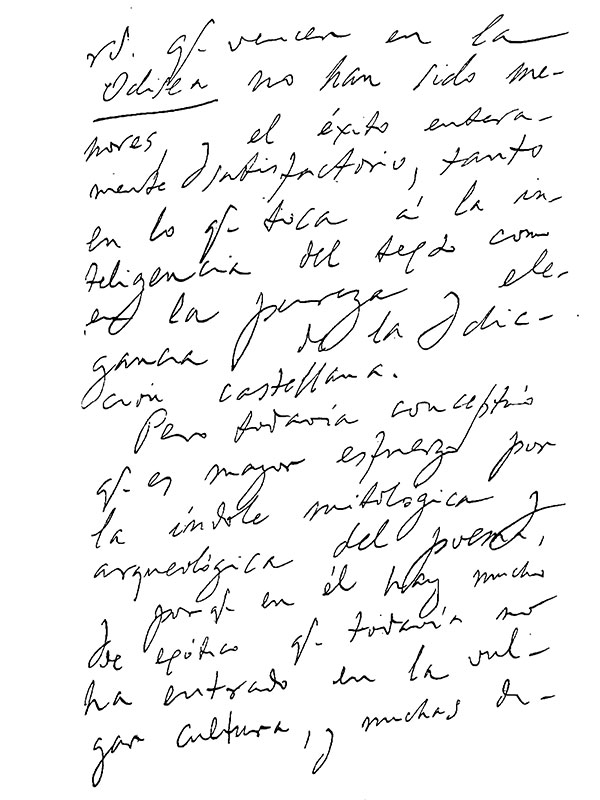 vd. q. vencer en la
Odisea no han sido me-
nores, y el éxito entera-
mente satisfactorio, tanto
en lo q. toca á la in-
teligencia del texto como
en la pureza y ele-
gancia de la dic-
ción castellana.
Pero todavía conceptúo
q. es mayor esfuerzo por
la índole mitológica y
arqueológica del poema,
y por q. en él hay mucho
de exótico q. todavía no
ha entrado en la vul-
gar cultura, y muchas di-